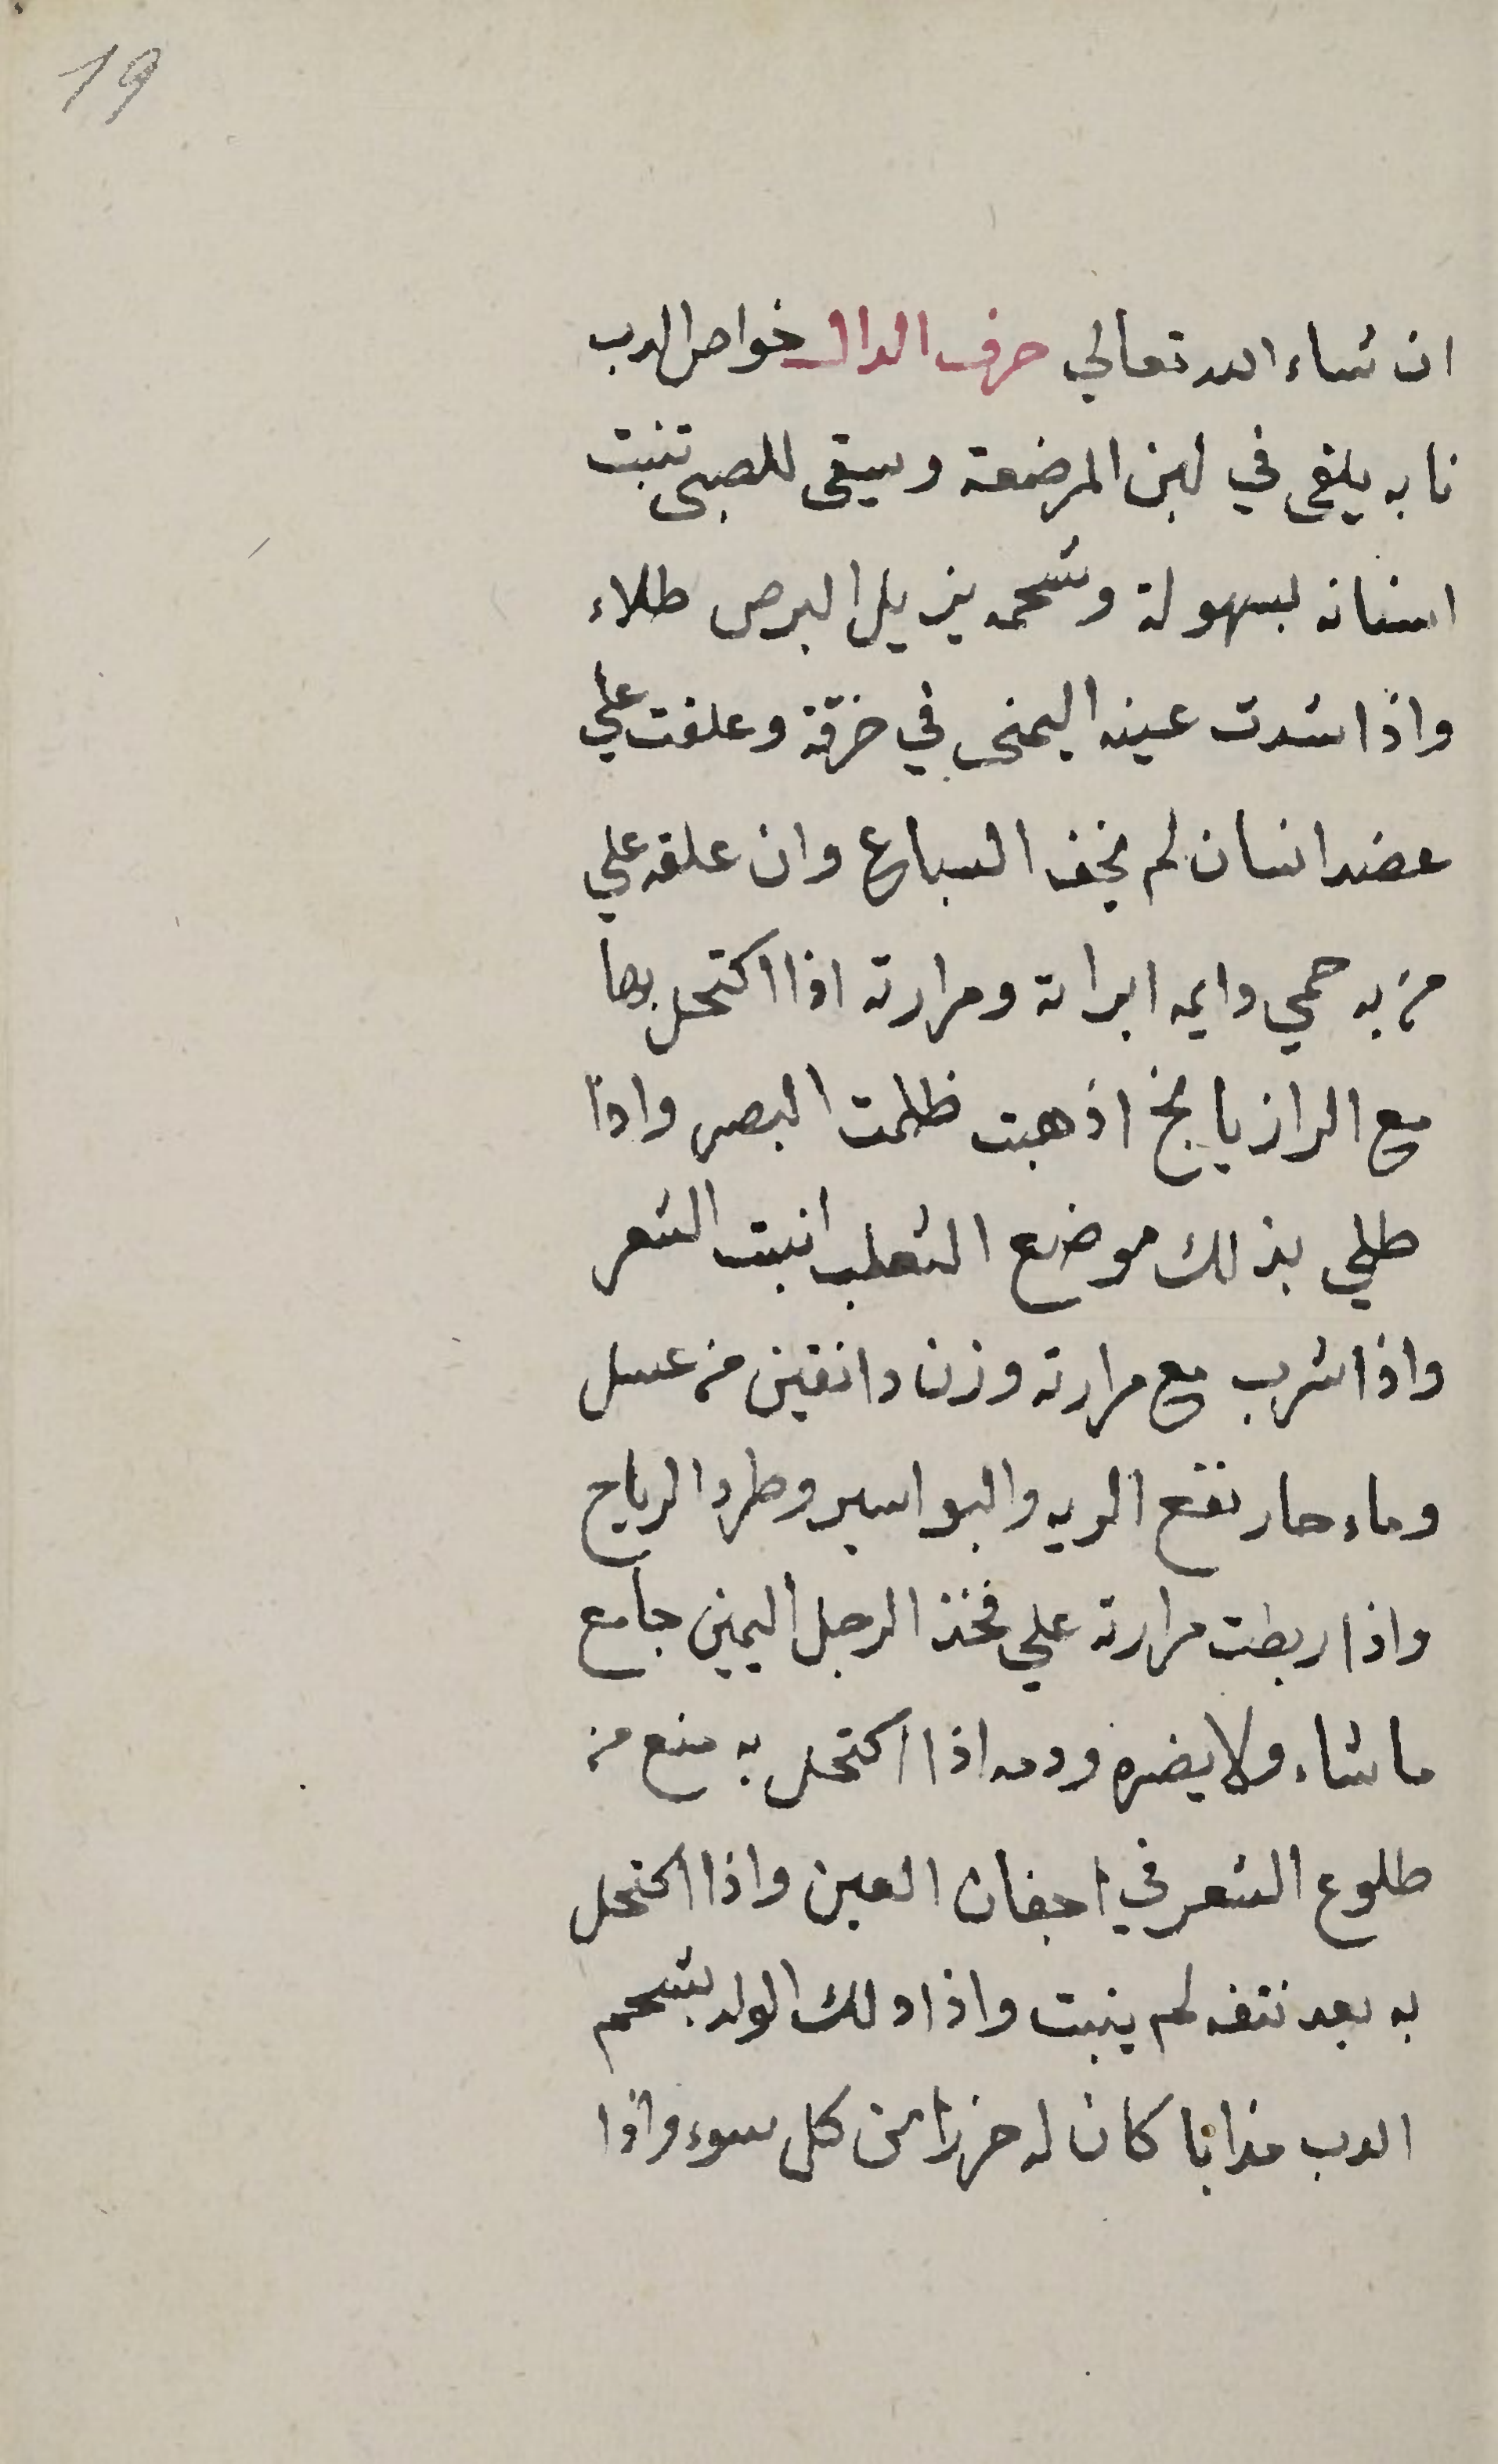 19
ان شاء الله تعالي حرف الدال خواص الدب
نابه يلقى في لبن المرضعة ويسقى للصبى تنبت
اسنانه بسهولة وشحمه يزيل البرص طلاء
واذا شدت عينه اليمنى في خرقة وعلقت علي
عضد انسان لم يخف السباع وان علقه علي
من به حمي دايمه ابراته ومرارته اذا اكتحل بها
مع الرازيانج اذهبت ظلمت البصر واذا
طلي بذلك موضع الثعلب انبت الشعر
واذا شرب مع مرارته وزن دانقين من عسل
وماء حار نفع الريه والبواسير وطرد الرياح
واذا ربطت مرارته علي فخذ الرجل اليمين جامع
ما شاء ولا يضره ودمه اذا اكتحل به منع من
طلوع الشعر في اجفان العين واذا اكتحل
به بعد نتفه لم ينبت واذا دلك الولد بشحم
الدب مذابا كان له حرزا من كل سوء واذا